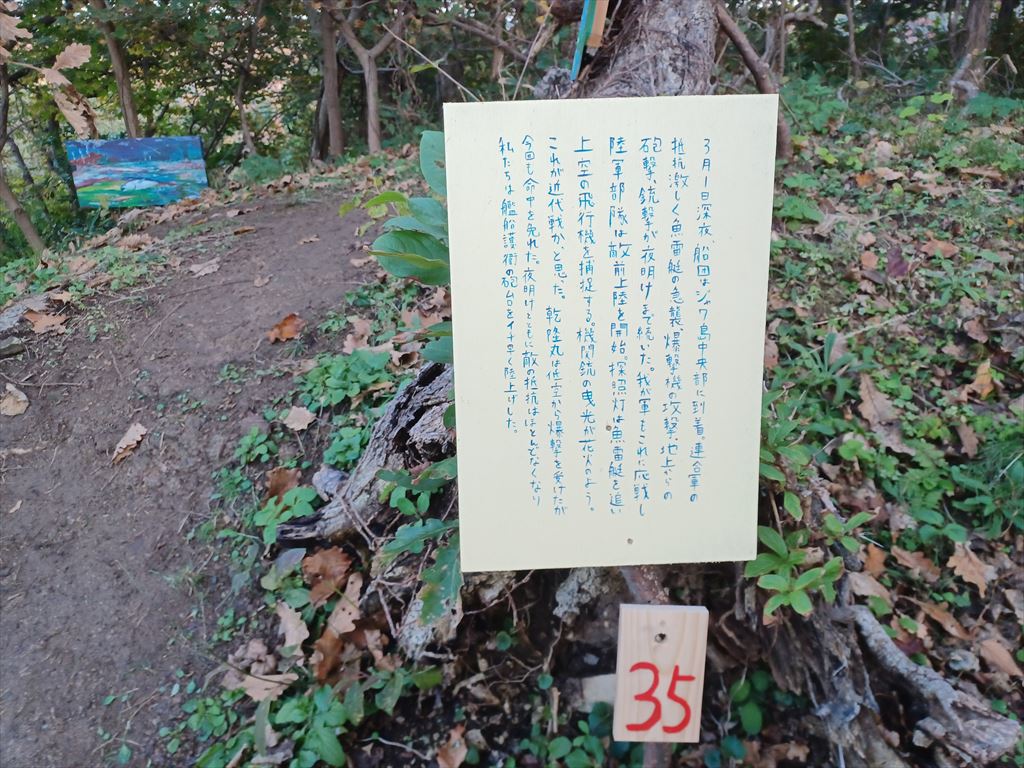 3月1日深夜、船団はジャワ島中央部に到着。連合軍の
抵抗激しく魚雷艇の急襲、爆撃機の攻撃、地上からの
砲撃、銃撃が夜明けまで続いた。我が軍もこれに応戦し
陸軍部隊は敵前上陸を開始。探照灯は魚雷艇を追い
上空の飛行機を捕捉する。機関銃の曳光が花火のよう。
これが近代戦か、と思った。乾陸丸は低空から爆撃を受けたが
今回も命中を免れた。夜明けとともに敵の抵抗はほとんどなくなり
私たちは艦船護衛の砲台をイチ早く陸上げした。
35